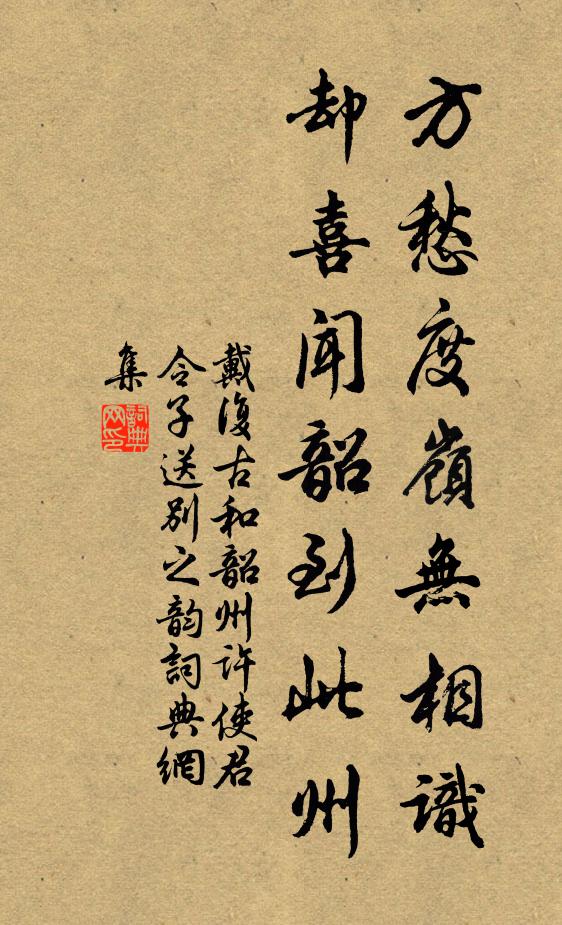 方愁度嶺無相識
却喜聞韶到此州
戴復古和韶州許使君
令子送别之韵詞典網
集
詞典
网印